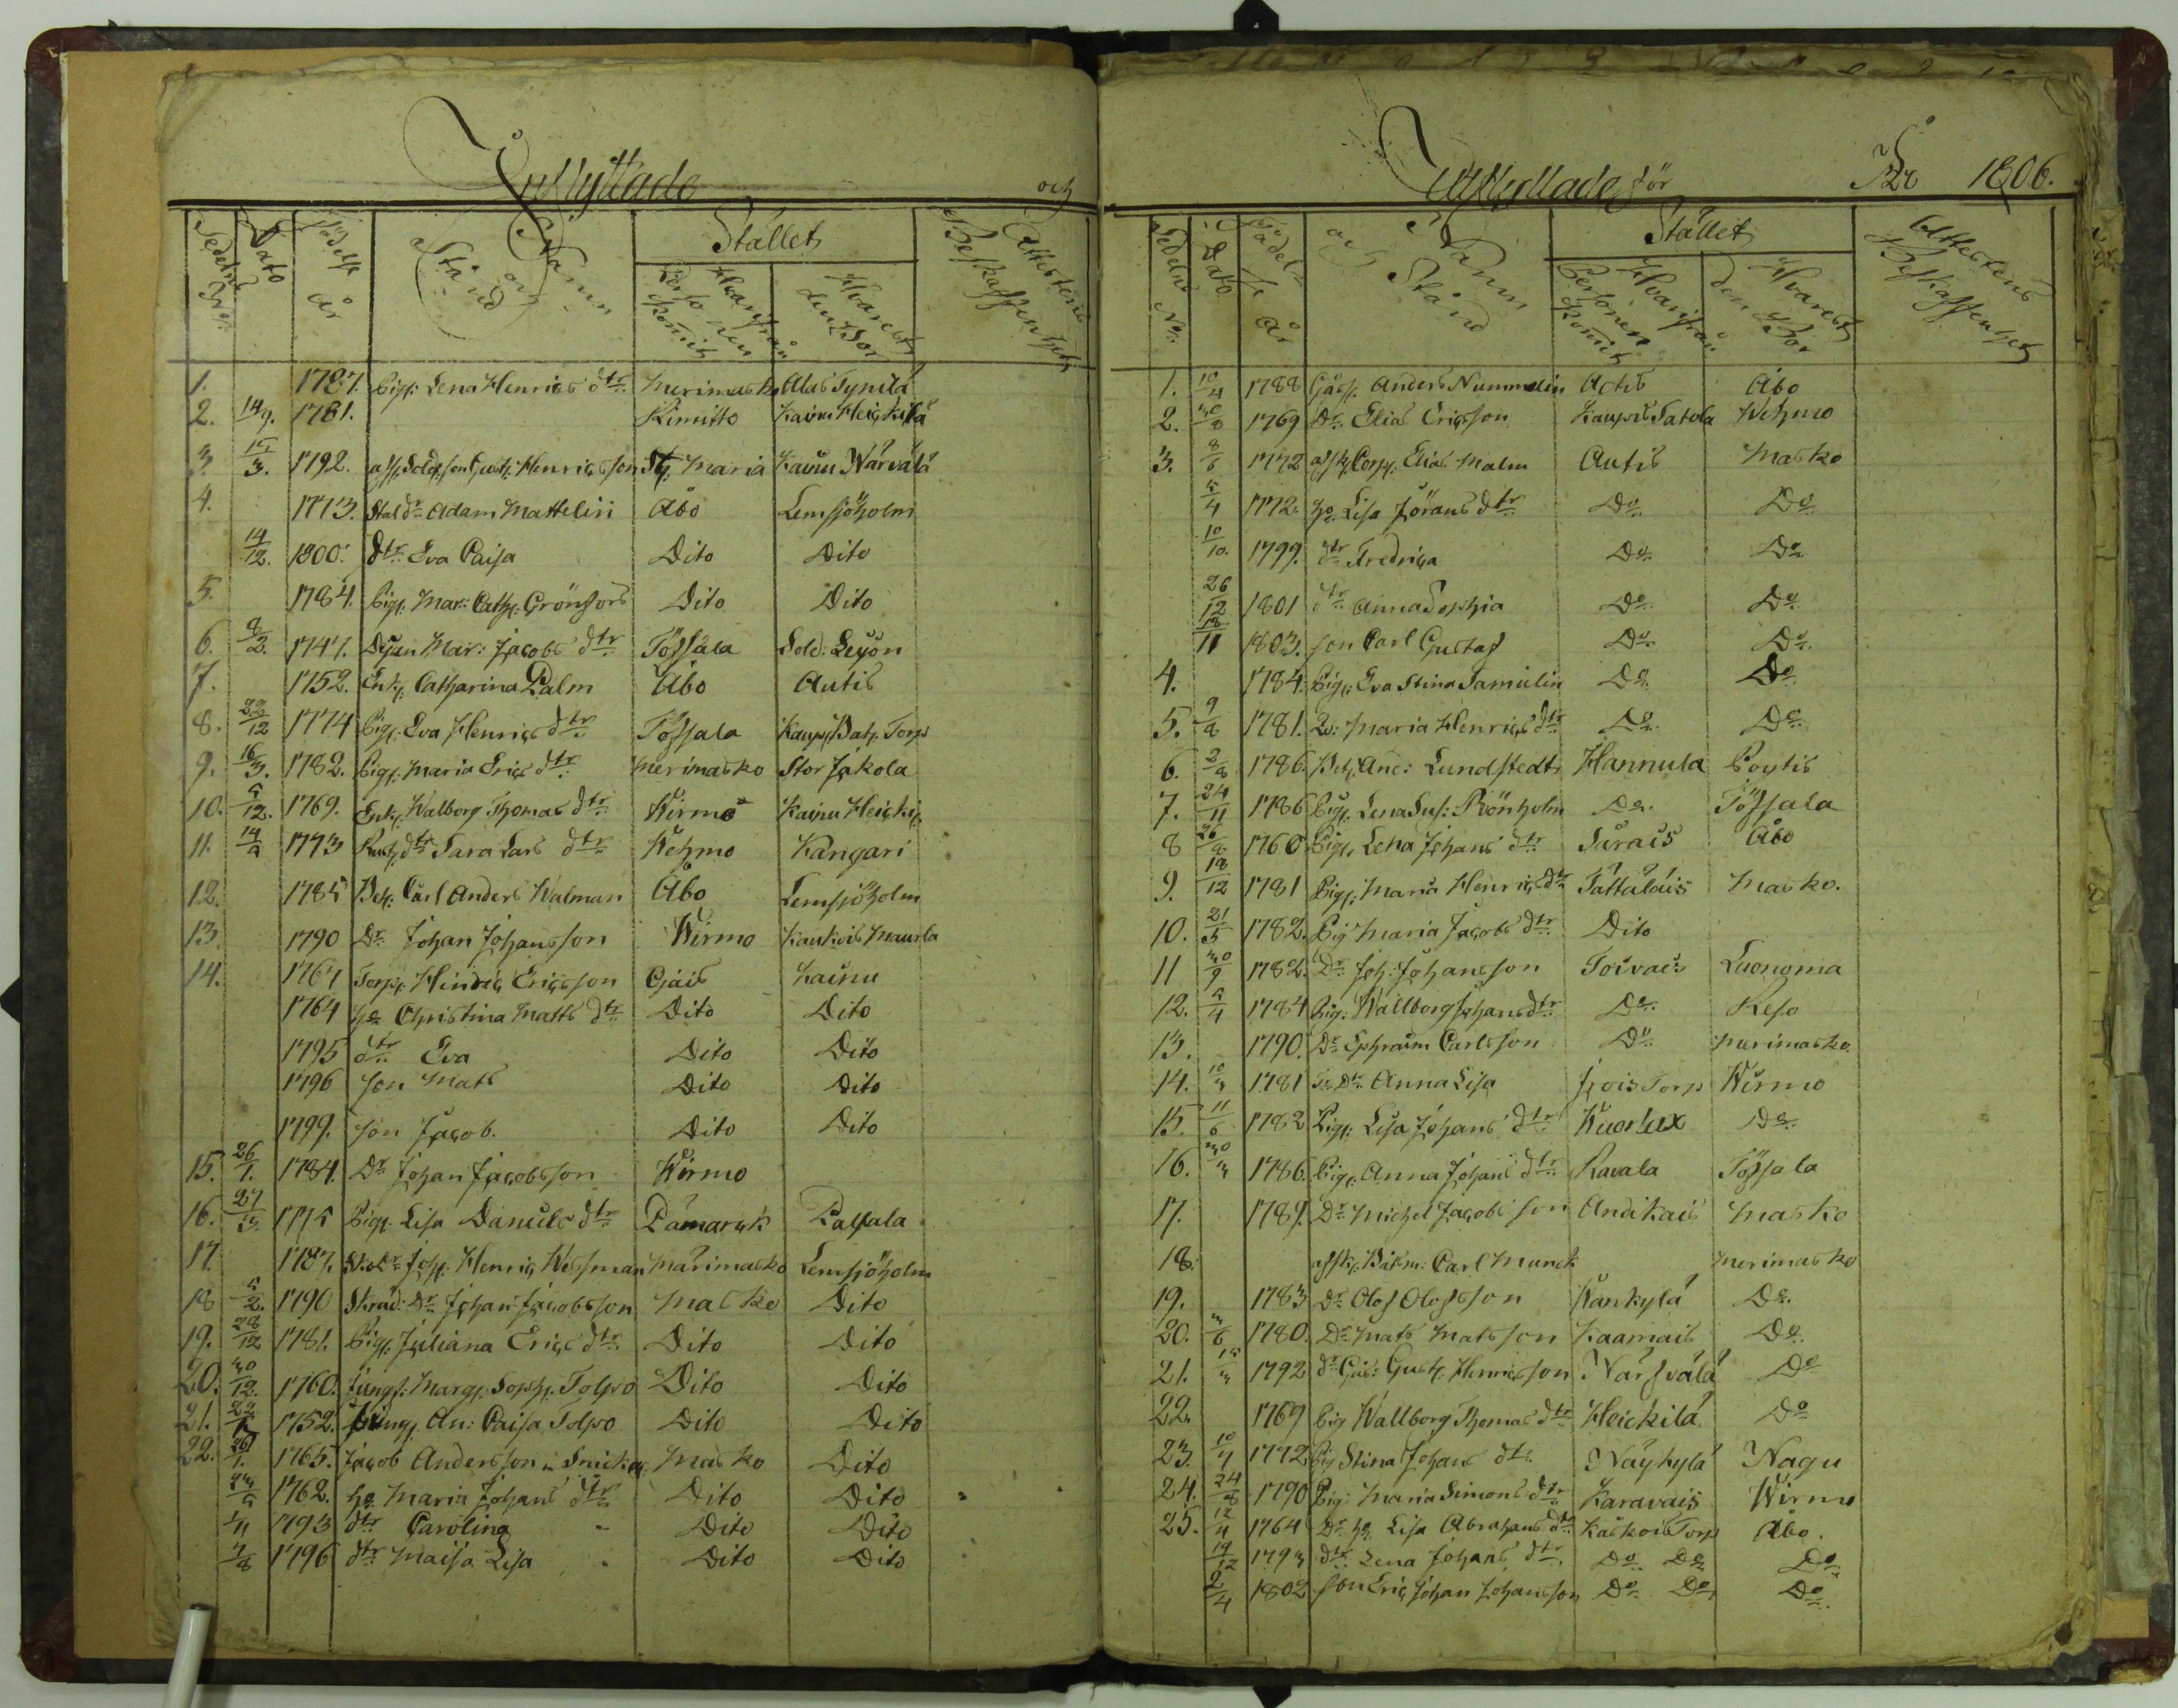 Inflyttade och
Sedelns No. Dato Födelse år Namn och Stånd Stället Attestens Beskaffenhet
Hvarifrån Personen kommit Hvarest den Bor
1. 1787. Pig: Lena Henrics dtr Merimasko Alas Tynilä
2. 14/9. 1781. Kimitto Kainu Heickilä
3. 15/3. 1792. afsk. Sold. son Gust: Henricsson St: Maria Kainu Närvälä
4. 1773. Stal dr Adam Mattelin Åbo Lemsjöholm
14/12. 1800. dtr Eva Caisa Dito Dito
5. 1784. Pig: Mar: Cath: Grönfors Dito Dito
6. 8/2. 1747. Dejan Mar: Jacobs dtr Töfsala Sold: Leijon
7. 1752. Enk: Catharina Palm Åbo Autis
8. 22/12 1774 Pig: Eva Henrics dtr Töfsala Kaups Bat: Torp
9. 16/3. 1782. Pig: Maria Erics dtr Merimasko Stor Jäkola
10. 5/12. 1769. Enk: Walborg Thomas dtr Wirmo Kainu Heicki:
11. 14/9 1773 Rusth: dtr Sara Lars dtr Wehmo Kangari
12. 1785 Betj: Carl Anders Walman Åbo Lemsjöholm
13. 1790 Dr Johan Johansson Wirmo Kaukois Maurla
14. 1767 Torp: Hindric Ericsson Gjäis Kainu
1764 ho Christina Matts dtr Dito Dito
1795 dtr Eva Dito Dito
1796 Son Mats Dito Dito
1799. Son Jacob. Dito Dito
15. 26/1. 1784. Dr Johan Jacobsson Wirmo
16. 27/ 1775 Pig: Lisa Daniels dtr Pämarck Pafsala
17 1787. Joh: Henric Wesman Märimasko Lemsjöholm
18 5/2. 1790 Skräd: Dr Johan Jacobsson Masko Dito
19. 28/12 1781. Pig: Juliana Erics dtr Dito Dito
20. 30/12. 1760. Jungf: Marg: Soph: Tolpo Dito Dito
21. 22/ 1752. Jungf: An: Caisa Tolpo Dito Dito
22. 26/1. 1765. Jacob Andersson Snickar Masko Dito
1762. ho Maria Johans dtr Dito Dito
1/11 1793 dtr Carolina Dito Dito
7/8 1796 dtr Maija Lisa Dito Dito
Utflyttade för År 1806.
Sedelns No. Dato Födelse år Namn och Stånd Stället Attestens Beskaffenhet
Hvarifrån Personen kommit Hvarest den Bor
1. 10/4 1788 Gäsf: Anders Nummelin Autis Åbo
2. 30/8 1769 Dr Elias Ericsson Kaupis Tatola Wehmo
3. 8/6 1772 afsk: Corp: Elias Malm Autis Masko
5/4 1772. ho Lisa Jörans dtr Do Do
10/10. 1799. dtr Fredrica Do Do
26/12 1801 dtr Anna Sophia Do Do
18/11 1803. son Carl Gustaf Do Do
4. 1784. Pig: Eva Stina Tamulin Do Do
5. 9/8 1781. Maria Henrics dtr Do Do
6. 2/8 1786. Betj: And: Lundstedt Hannula Pöytis
7. 24/11 1786 Pig: Lena Sus: Rönholm Do Töfsala
8 26/8 1760 Pig: Lena Johans dtr Sürais Åbo
9. 18/12 1781 Pig: Maria Henrics dtr Tättäläis Masko.
10. 21/5 1782. Pig Maria Jacobs dtr Dito
11 30/9 1782. Dr Joh: Johansson Toivais Luonoma
12. 5/4 1784 Pig: Wallborg Johans dtr Do Reso
13. 1790. Dr Ephraim Carlsson Do Merimasko
14. 10/3 1781 Dtr Anna Lisa Jrois Torp Wirmo
15. 11/6 1782 Pig: Lisa Johans dtr Kuorlax Do
16. 30/3 1786. Pig: Anna Johans dtr Ravala Töfsala
17. 1789. Dr Michel Jacobsson Anikais Masko
18. afsk: Båtsm: Carl Munck Merimasko
19. 1783 Dr Olof Olofsson Wänkylä Do
20. 3/6 1780. Dr Mats Matsson Kaamais Do
21. 15/3 1792 Gust: Henricsson Närfvälä Do
22. 1769 Pig Wallborg Thomas dtr Heickilä Do
23. 10/4 1772 Pig Stina Johans dtr Näykylä Nagu
24. 24/8 1790 Pig: Maria Simons dtr Karavais Wirmo
25. 12/4 1764 Dr ho Lisa Abrahams dtr Kaskois Torp Åbo.
19/12 1793 dtr Lena Johans dtr Do Do Do
2/4 1802 son Eric Johan Johansson Do Do Do